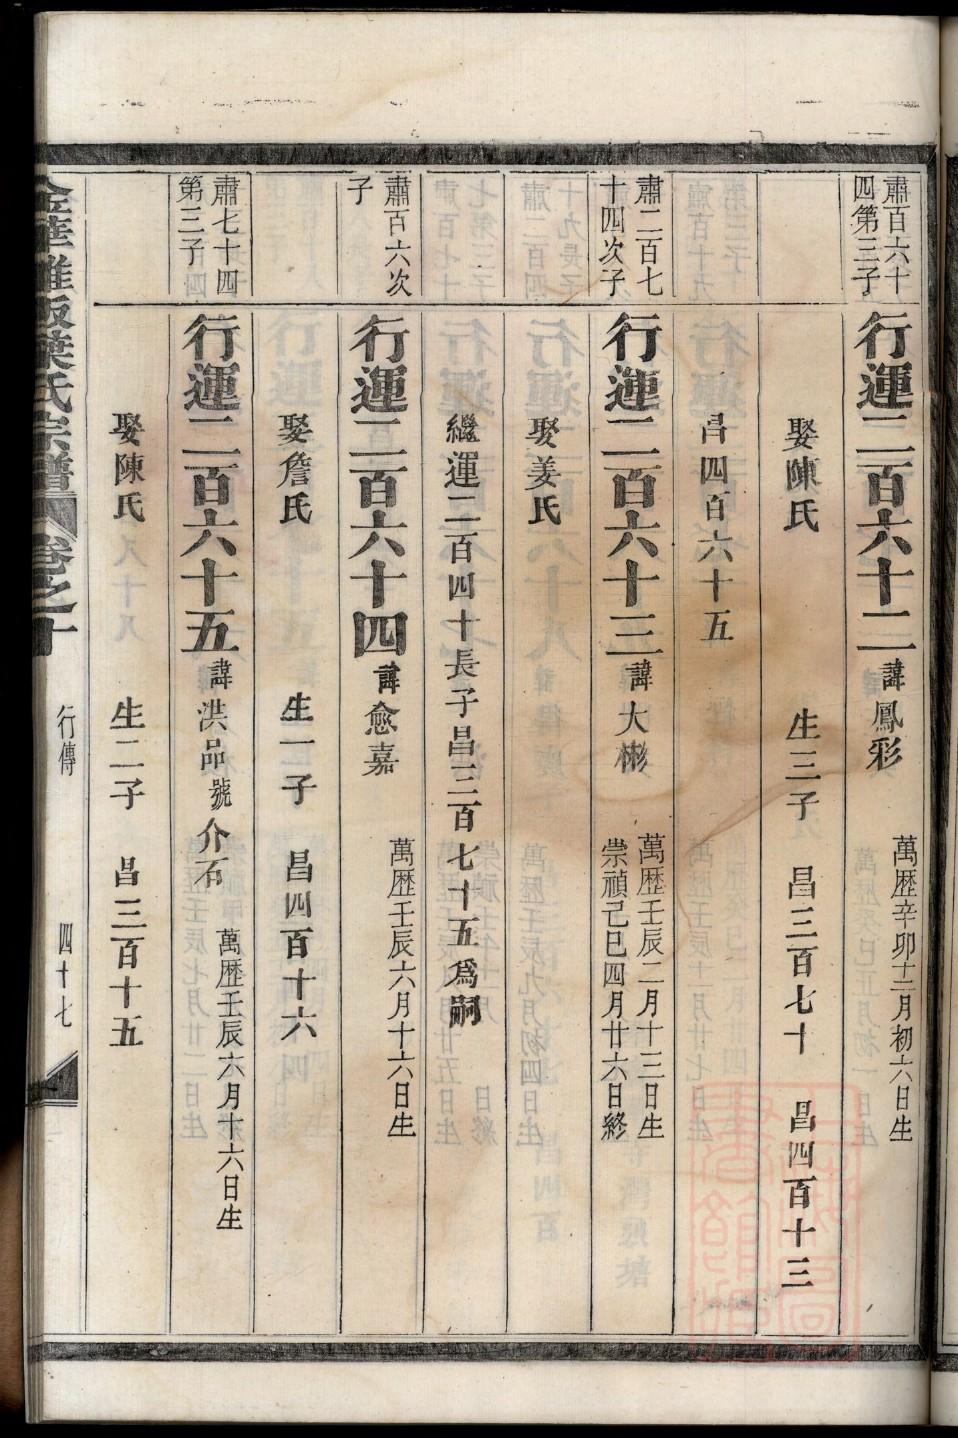 肅百六十
四第三子
行運二百六十二 諱鳳彩 萬歷辛卯十二月初六日生
娶陳氏 生三子 昌三百七十 昌四百十三
昌四百六十五
肅二百七
十四次子
行運二百六十三 諱大彬 萬歷壬辰二月十三日生
崇禎己巳四月廿六日終
娶姜氏
繼運二百四十長子昌三百七十五爲嗣
肅百六次
子
行運二百六十四 諱愈嘉 萬歷壬辰六月十六日生
娶詹氏 生一子 昌四百十六
肅七十四
第三子
行運二百六十五 諱洪品號介石 萬歷壬辰六月十六日生
娶陳氏 生二子 昌三百十五
葉氏宗譜 卷之十 行傳 四十七